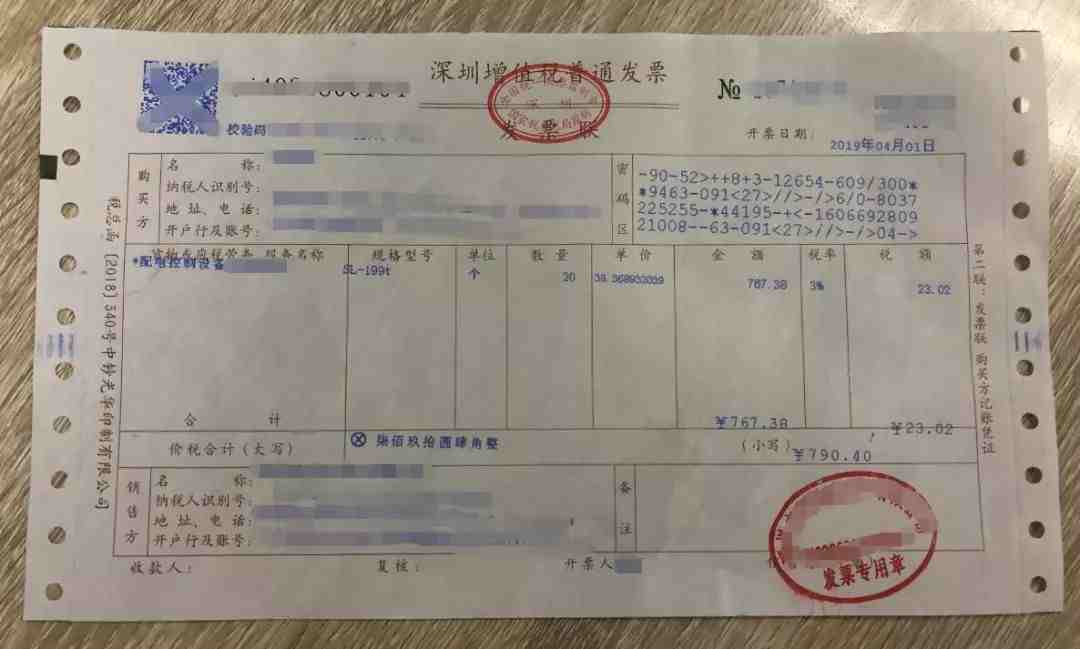 深圳增值税普通发票
发票联
№
校验码
开票日期：
2019年04月01日
购买方
名称：
纳税人识别号：
地址、电话：
开户行及账号：
密码区
-90-52>++8+3-12654-609/300*
*9463-091<27>//>-/>6/0-8037
225255-*44195-+<-1606692809
21008--63-091<27>//>-/>04->
货物或应税劳务、服务名称 规格型号 单位 数量 单价 金额 税率 税额
*配电控制设备 SL-199t 个 20 767.38 3% 23.02
合计 ¥767.38 ¥23.02
价税合计（大写） ⊗ 柒佰玖拾圆肆角整 （小写） ¥790.40
销售方
名称：
纳税人识别号：
地址、电话：
开户行及账号：
备注
收款人： 复核： 开票人
发票专用章
税总函〔2018〕340号中钞光华印制有限公司
第二联：发票联 购买方记账凭证